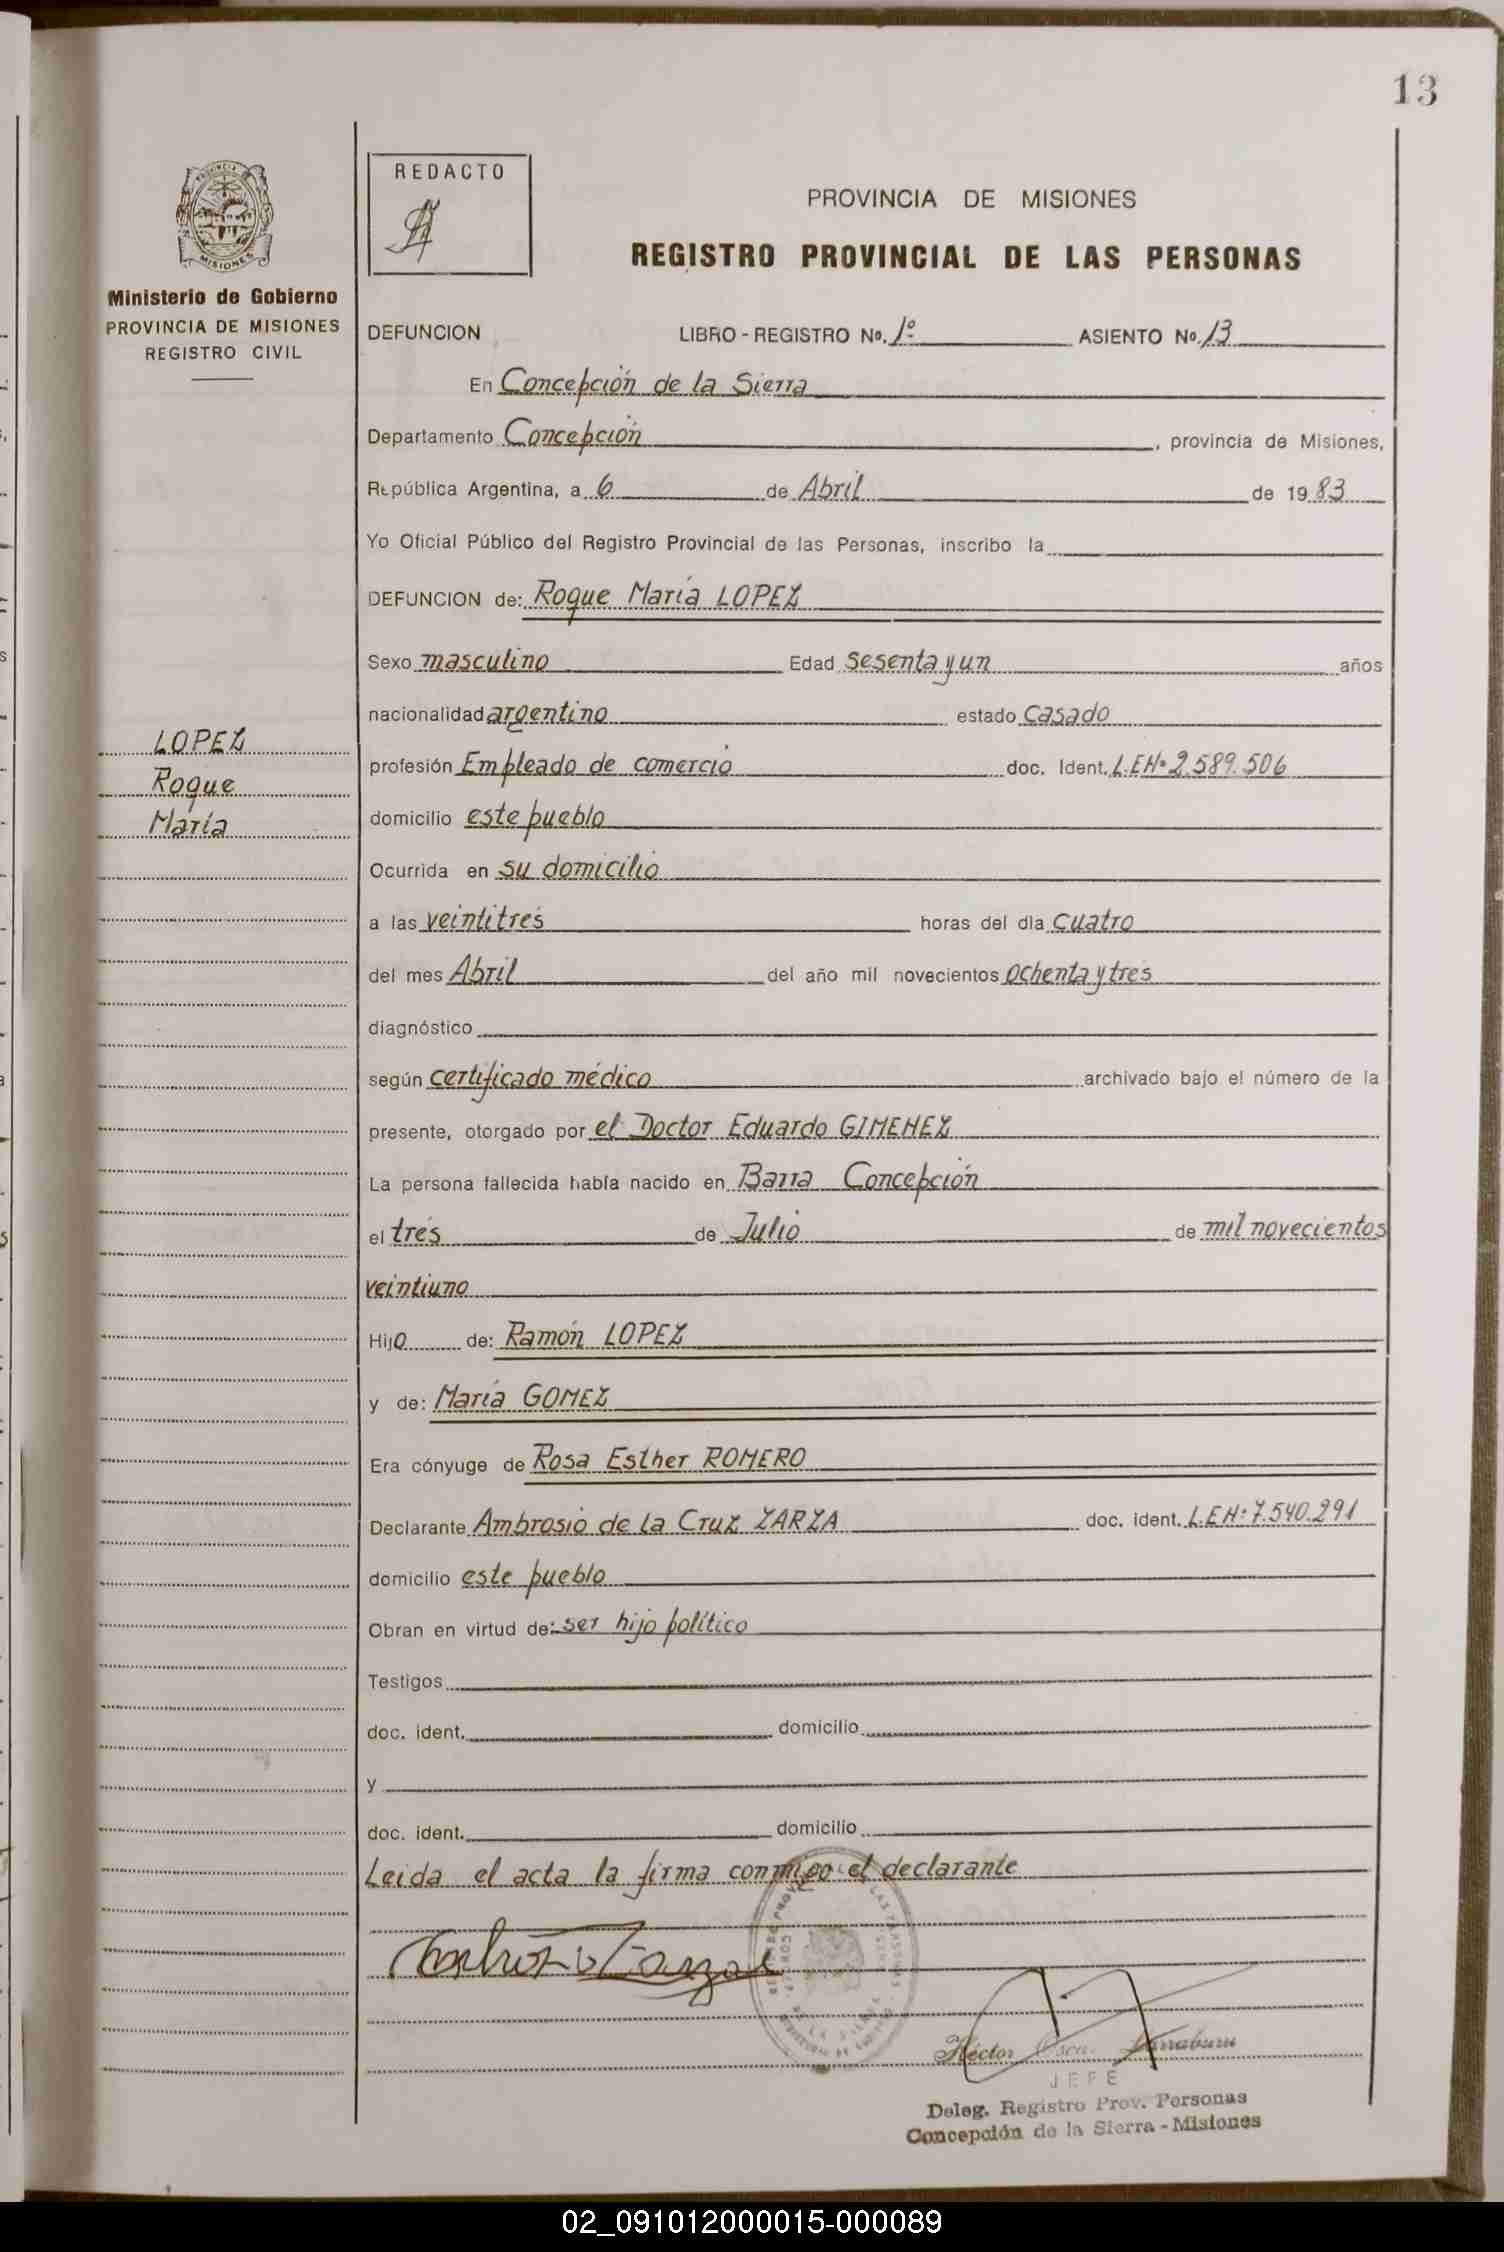 13
PROVINCIA
MISIONES
Ministerio de Gobierno
PROVINCIA DE MISIONES
REGISTRO CIVIL
REDACTO
PROVINCIA DE MISIONES
REGISTRO PROVINCIAL DE LAS PERSONAS
DEFUNCION LIBRO - REGISTRO No. 1º ASIENTO No. 13
En Concepción de la Sierra
Departamento Concepción, provincia de Misiones,
República Argentina, a 6 de Abril de 19 83
Yo Oficial Público del Registro Provincial de las Personas, inscribo la
DEFUNCION de: Roque María LOPEZ
Sexo masculino Edad sesenta y un años
nacionalidad argentino estado casado
LOPEZ
Roque
María
profesión Empleado de comercio doc. Ident. L.E.Nº 2.589.506
domicilio este pueblo
Ocurrida en su domicilio
a las veintitrés horas del día cuatro
del mes Abril del año mil novecientos ochenta y tres
diagnóstico
según certificado médico archivado bajo el número de la
presente, otorgado por el Doctor Eduardo GIMENEZ
La persona fallecida había nacido en Barra Concepción
el tres de Julio de mil novecientos
veintiuno
Hijo de: Ramón LOPEZ
y de: María GOMEZ
Era cónyuge de Rosa Esther ROMERO
Declarante Ambrosio de la Cruz ZARZA doc. ident. L.E.Nº 7.540.291
domicilio este pueblo
Obran en virtud de: ser hijo político
Testigos
doc. ident. domicilio
y
doc. ident. domicilio
Leida el acta la firma conmigo el declarante
Héctor
JEFE
Deleg. Registro Prov. Personas
Concepción de la Sierra - Misiones
02_091012000015-000089